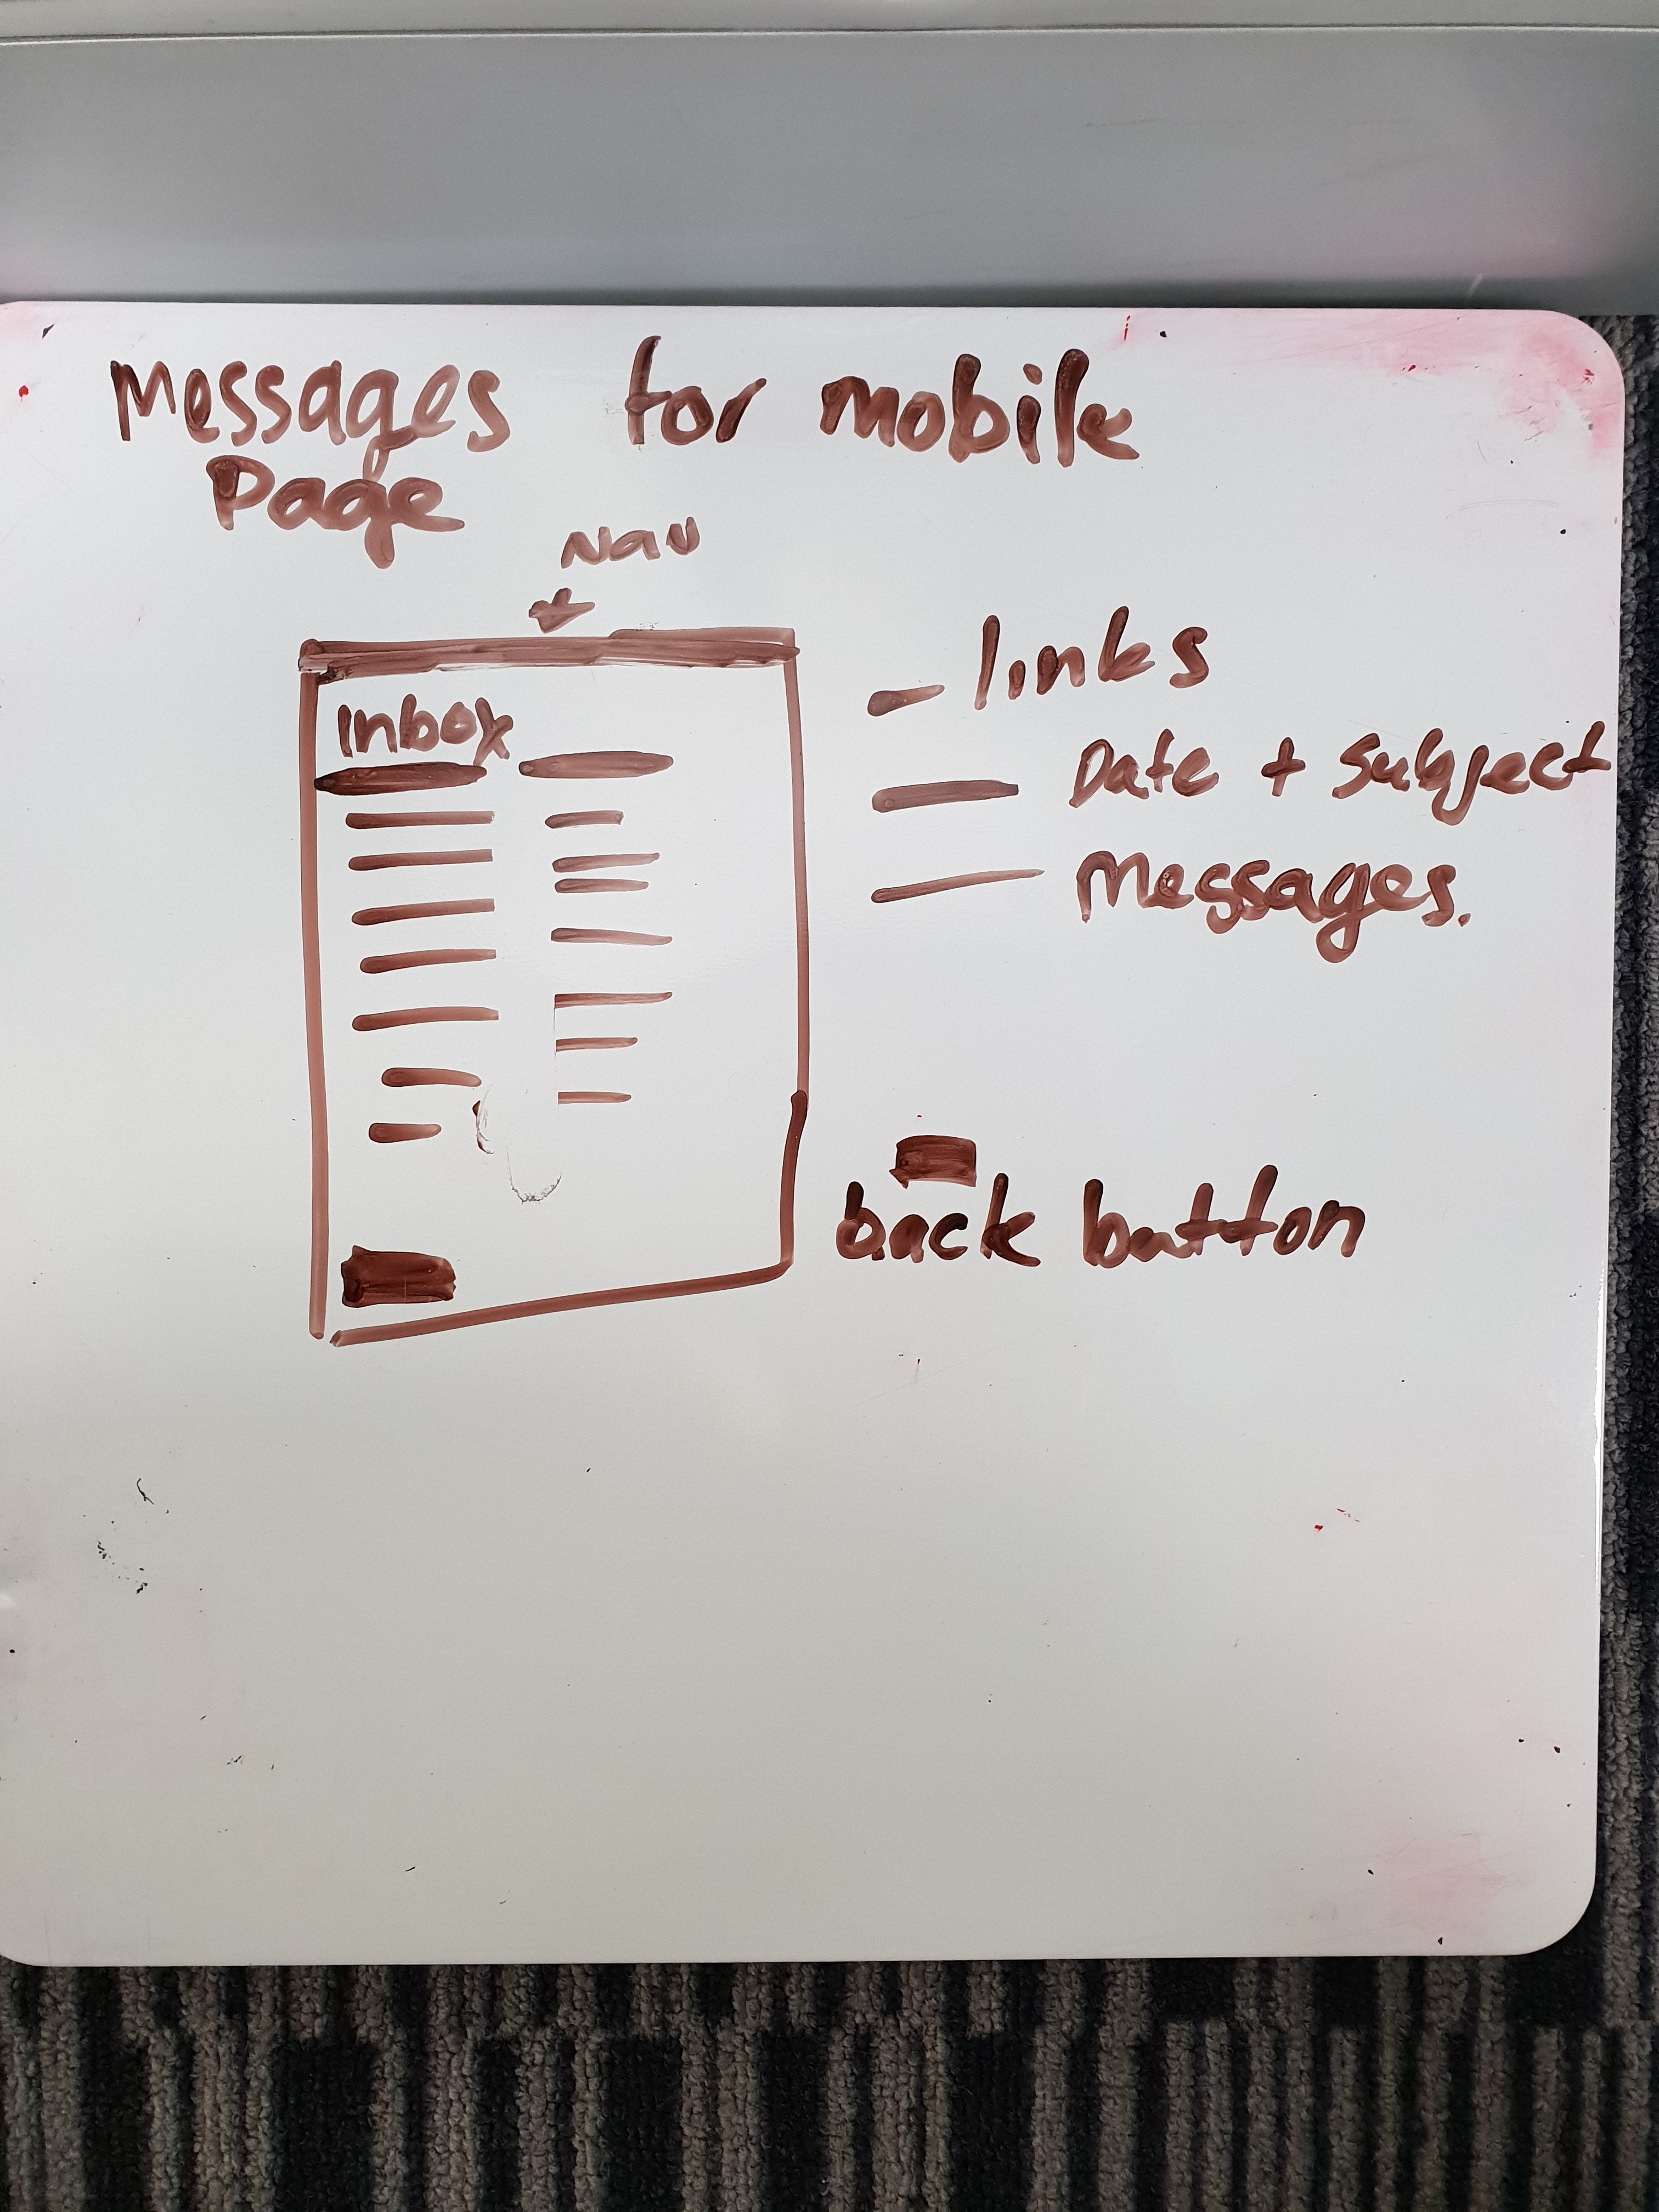 Messages for mobile
Page
Nav
Inbox
- links
Date + Subject
Messages.
back button